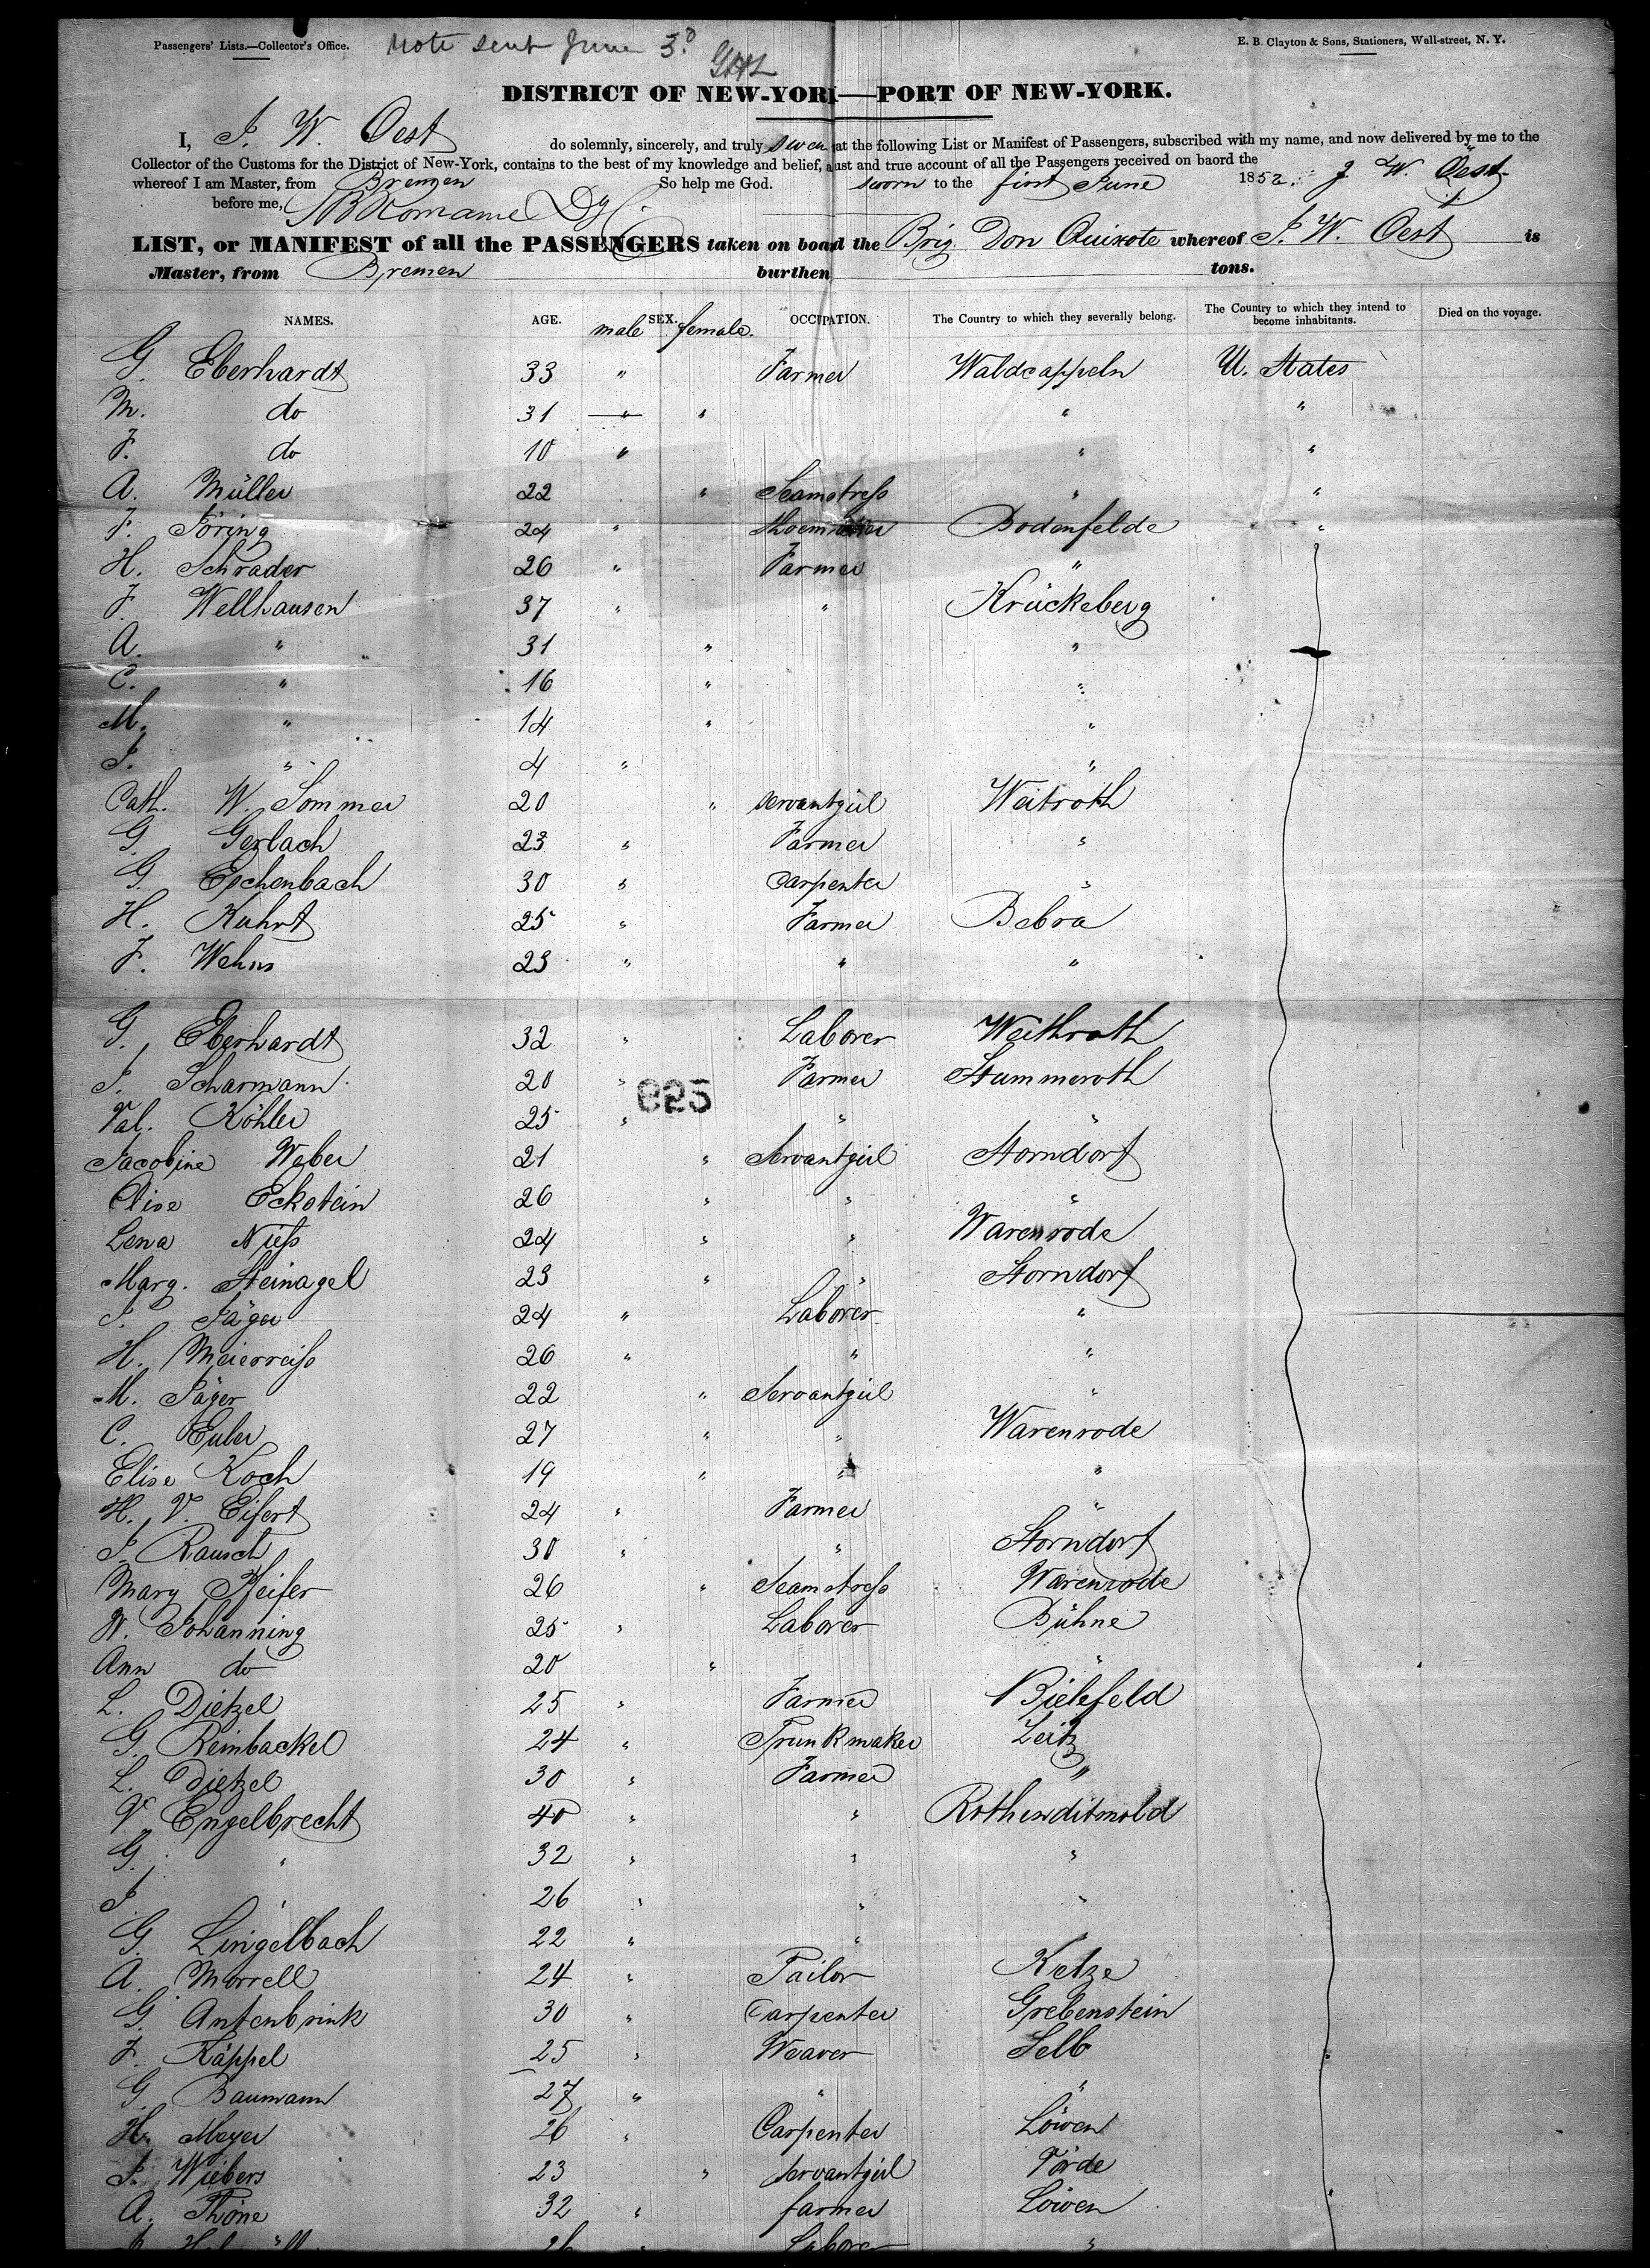 Passengers' Lists.—Collector's Office. Note sent June 3d E. B. Clayton & Sons, Stationers, Wall-street, N. Y.
DISTRICT OF NEW-YORK—PORT OF NEW-YORK.
I, J. W. Oest do solemnly, sincerely, and truly swear that the following List or Manifest of Passengers, subscribed with my name, and now delivered by me to the
Collector of the Customs for the District of New-York, contains to the best of my knowledge and belief, a just and true account of all the Passengers received on baord the
whereof I am Master, from Bremen So help me God. sworn to the first June 1852. J. W. Oest
before me,
LIST, or MANIFEST of all the PASSENGERS taken on board the Brig Don Quixote whereof J. W. Oest is
Master, from Bremen burthen tons.
NAMES. AGE. SEX. male female. OCCUPATION. The Country to which they severally belong. The Country to which they intend to become inhabitants. Died on the voyage.
G. Eberhardt 33 " Farmer Waldcappeln U. States
M. do 31 " " " "
F. do 10 " " "
A. Müller 22 " Seamstress " "
F. Jöring 24 " Shoemaker Bodenfelde "
H. Schrader 26 " Farmer "
F. Wellhausen 37 " " Krückeberg
A. " 31 " "
C. " 16 " "
M. " 14 " "
J. " 4 " "
Cath. W. Sommer 20 " servantgirl Weitroth
G. Gerlach 23 " Farmer "
G. Eschenbach 30 " Carpenter "
H. Kuhrt 25 " Farmer Bebra
F. Wehns 23 " " "
G. Eberhardt 32 " Laborer Weithroth
J. Scharmann 20 " Farmer Stummeroth
825
Val. Köhler 25 " " "
Jacobine Weber 21 " Servantgirl Storndorf
Elise Eckstein 26 " " "
Lena Niess 24 " " Warenrode
Marg. Steinagel 23 " " Storndorf
J. Jäger 24 " Laborer "
H. Meierreiss 26 " " "
M. Jäger 22 " Servantgirl "
C. Euler 27 " " Warenrode
Elise Koch 19 " " "
H. V. Eifert 24 " Farmer "
J. Rausch 30 " " Storndorf
Mary Pfeifer 26 " Seamstress Warenrode
W. Johanning 25 " Laborer Bühne
Ann do 20 " "
L. Dietzel 25 " Farmer Bielefeld
G. Reinbackel 24 " Trunkmaker Zeitz
L. Dietzel 30 " Farmer "
V. Engelbrecht 40 " " Rothenditmold
G. " 32 " " "
J. " 26 " " "
G. Lingelbach 22 " "
A. Morrell 24 " Tailor Ketze
G. Antenbrink 30 " Carpenter Grebenstein
F. Käppel 25 " Weaver Selb
G. Baumann 27 " " "
H. Meyer 26 " Carpenter Löwen
J. Wiebers 23 " servantgirl Vörde
A. Thöne 32 " farmer Löwen
26 " Laborer "